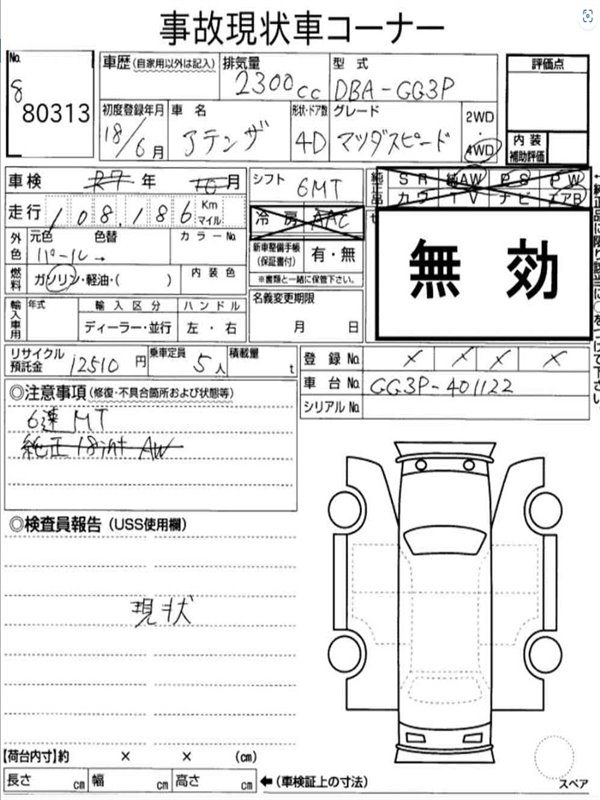 事故現状車コーナー
No. 8 80313
車歴 (自家用以外は記入) 排気量 2300cc 型式 DBA-GG3P 評価点
初度登録年月 18/6月 車名 アテンザ 形状・ドア数 4D グレード マツダスピード 2WD・4WD 内装補助評価
車検 R7年 10月 シフト 6MT 純正品 SR 純AW PS PW
カワ TV ナビ エアB
走行 108,186 Km マイル 冷房 AAC
無効
外色 元色 色替 カラーNo. パール→ 新車整備手帳(保証書付) 有・無
燃料 ガソリン・軽油・( ) 内装色 ※書類と一緒に保管下さい。
輸入車用 年式 輸入区分 ハンドル 名義変更期限
ディーラー・並行 左・右 月 日
リサイクル預託金 12510円 乗車定員 5人 積載量 t 登録No. × × × ×
車台No. GG3P-401122
シリアルNo.
◎注意事項 (修復・不具合箇所および状態等)
6速MT
純正18int AW
◎検査員報告 (USS使用欄)
現状
【荷台内寸】約 × × (cm)
長さ cm 幅 cm 高さ cm ←(車検証上の寸法)
スペア